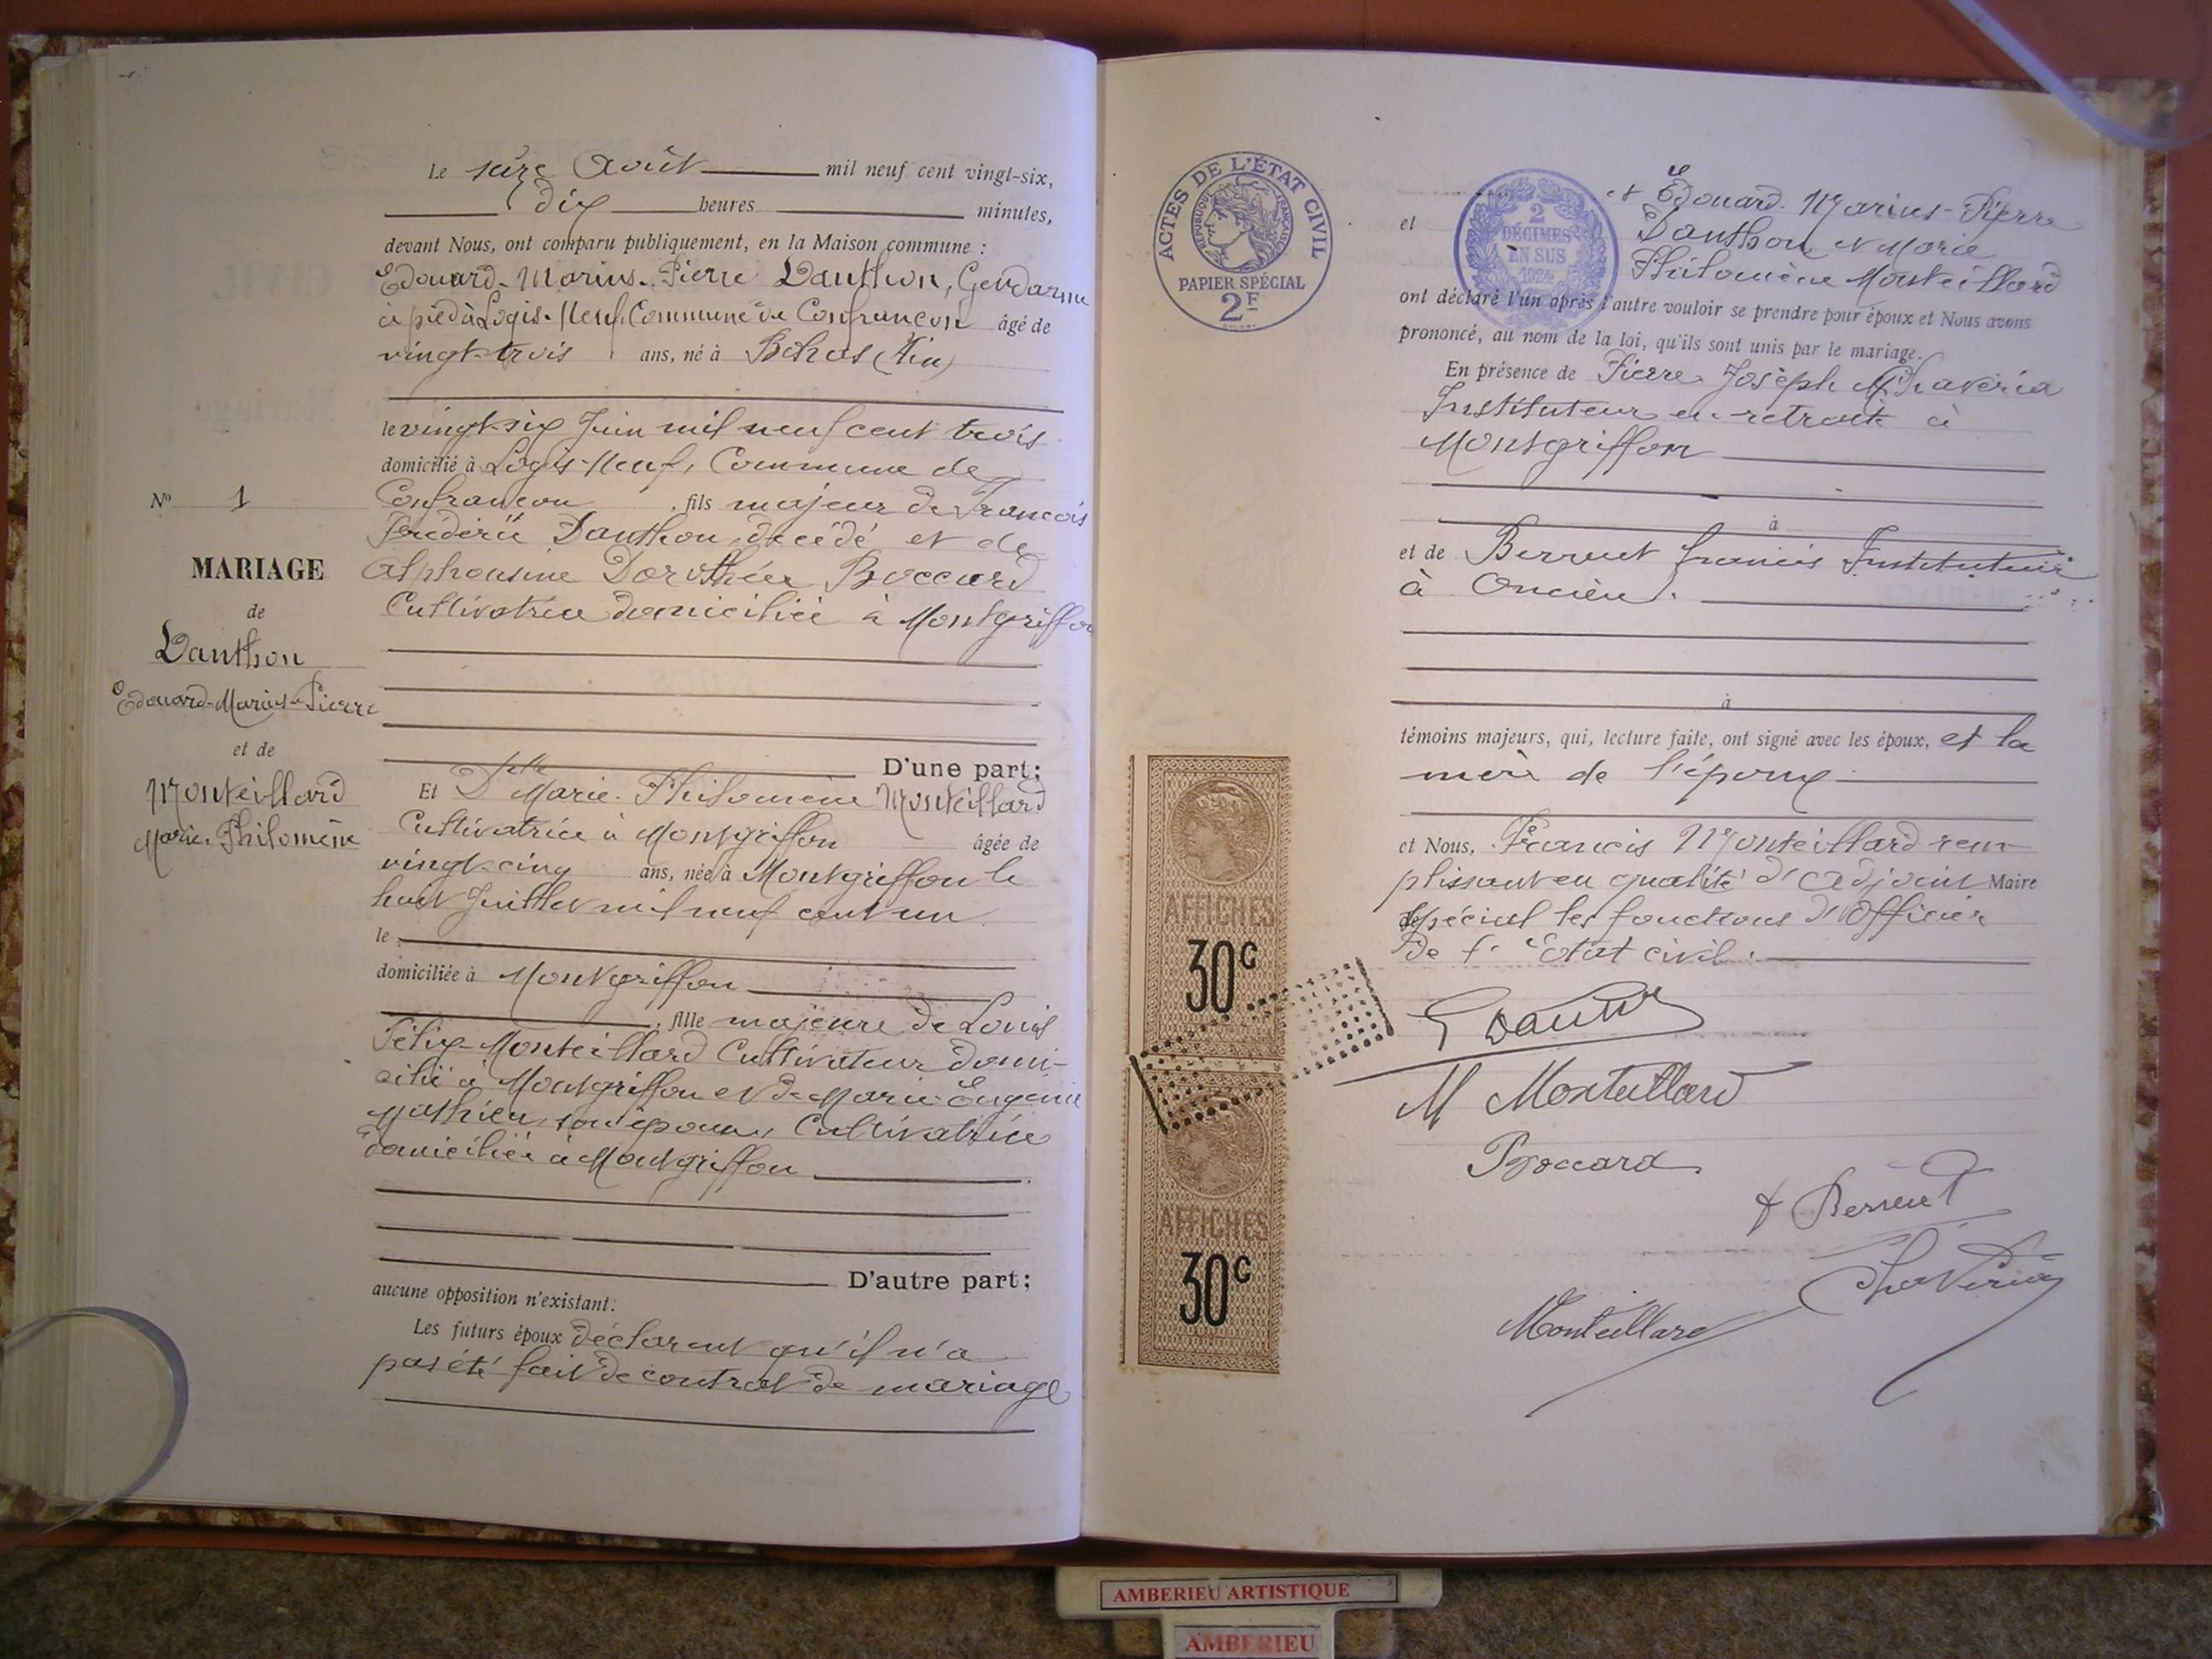 Le seize Août mil neuf cent vingt-six,
dix heures minutes,
devant Nous, ont comparu publiquement, en la Maison commune :
Edouard-Marius-Pierre Danthon, Gendarme
à pied à Logis-Neuf, Commune de Confrançon âgé de
vingt-trois ans, né à Bohas (Ain)
le vingt-six Juin mil neuf cent trois
domicilié à Logis-Neuf, Commune de
Confrançon , fils majeur de François
Frédéric Danthon, décédé et de
Alphonsine Dorothée Boccard
Cultivatrice domiciliée à Montgriffon
D'une part;
Et Dlle Marie-Philomène Monteillard
Cultivatrice à Montgriffon âgée de
vingt-cinq ans, née à Montgriffon le
huit Juillet mil neuf cent un
le
domiciliée à Montgriffon
, fille majeure de Louis
Félix Monteillard Cultivateur domi-
cilié à Montgriffon et de Marie Eugénie
Mathieu, son épouse, Cultivatrice
domiciliée à Montgriffon
D'autre part;
aucune opposition n'existant.
Les futurs époux déclarent qu'il n'a
pas été fait de contrat de mariage
No 1
MARIAGE
de
Danthon
Edouard-Marius-Pierre
et de
Monteillard
Marie-Philomène
ACTES DE L'ÉTAT CIVIL
RÉPUBLIQUE FRANÇAISE
PAPIER SPÉCIAL
2F
2
DÉCIMES
EN SUS
1924
et Edouard-Marius-Pierre
et Danthon et Marie
Philomène Monteillard
ont déclaré l'un après l'autre vouloir se prendre pour époux et Nous avons
prononcé, au nom de la loi, qu'ils sont unis par le mariage.
En présence de Pierre Joseph Chavéria
Instituteur en retraite à
Montgriffon
à
et de Berruet francis Instituteur
à Oncieu.
à
témoins majeurs, qui, lecture faite, ont signé avec les époux, et la
mère de l'époux
et Nous, Francis Monteillard rem-
plissant en qualité d'Adjoint Maire
spécial les fonctions d'Officier
de l'Etat civil.
E Danthon
M Monteillard
Boccard
f Berruet
Chavéria
Monteillard
AFFICHES
30c
AFFICHES
30c
AMBERIEU ARTISTIQUE
AMBERIEU